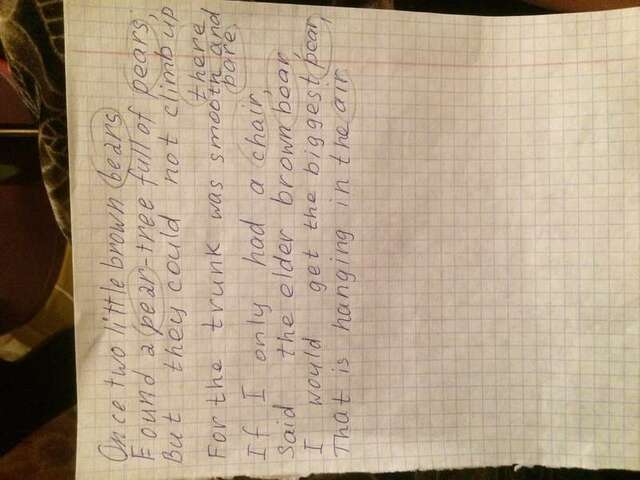 Once two little brown bears
Found a pear-tree full of pears;
But they could not climb up
there
For the trunk was smooth and
bare.
If I only had a chair,
Said the elder brown bear
I would get the biggest pear,
That is hanging in the air